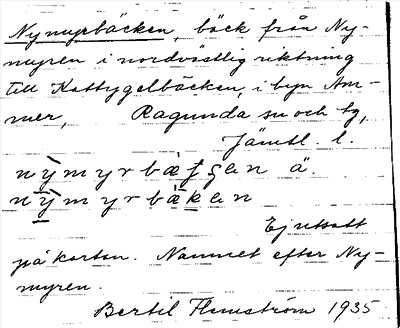 Nymyrbäcken, bäck från Ny-
myren i nordvästlig riktning
till Kattygelbäcken, i byn Am-
mer, Ragunda sn och tg,
Jämtl. l.
nymyrbäʃʃen ä.
nymyrbäken
Ej utsatt
på kartan. Namnet efter Ny-
myren.
Bertil Flemström 1935